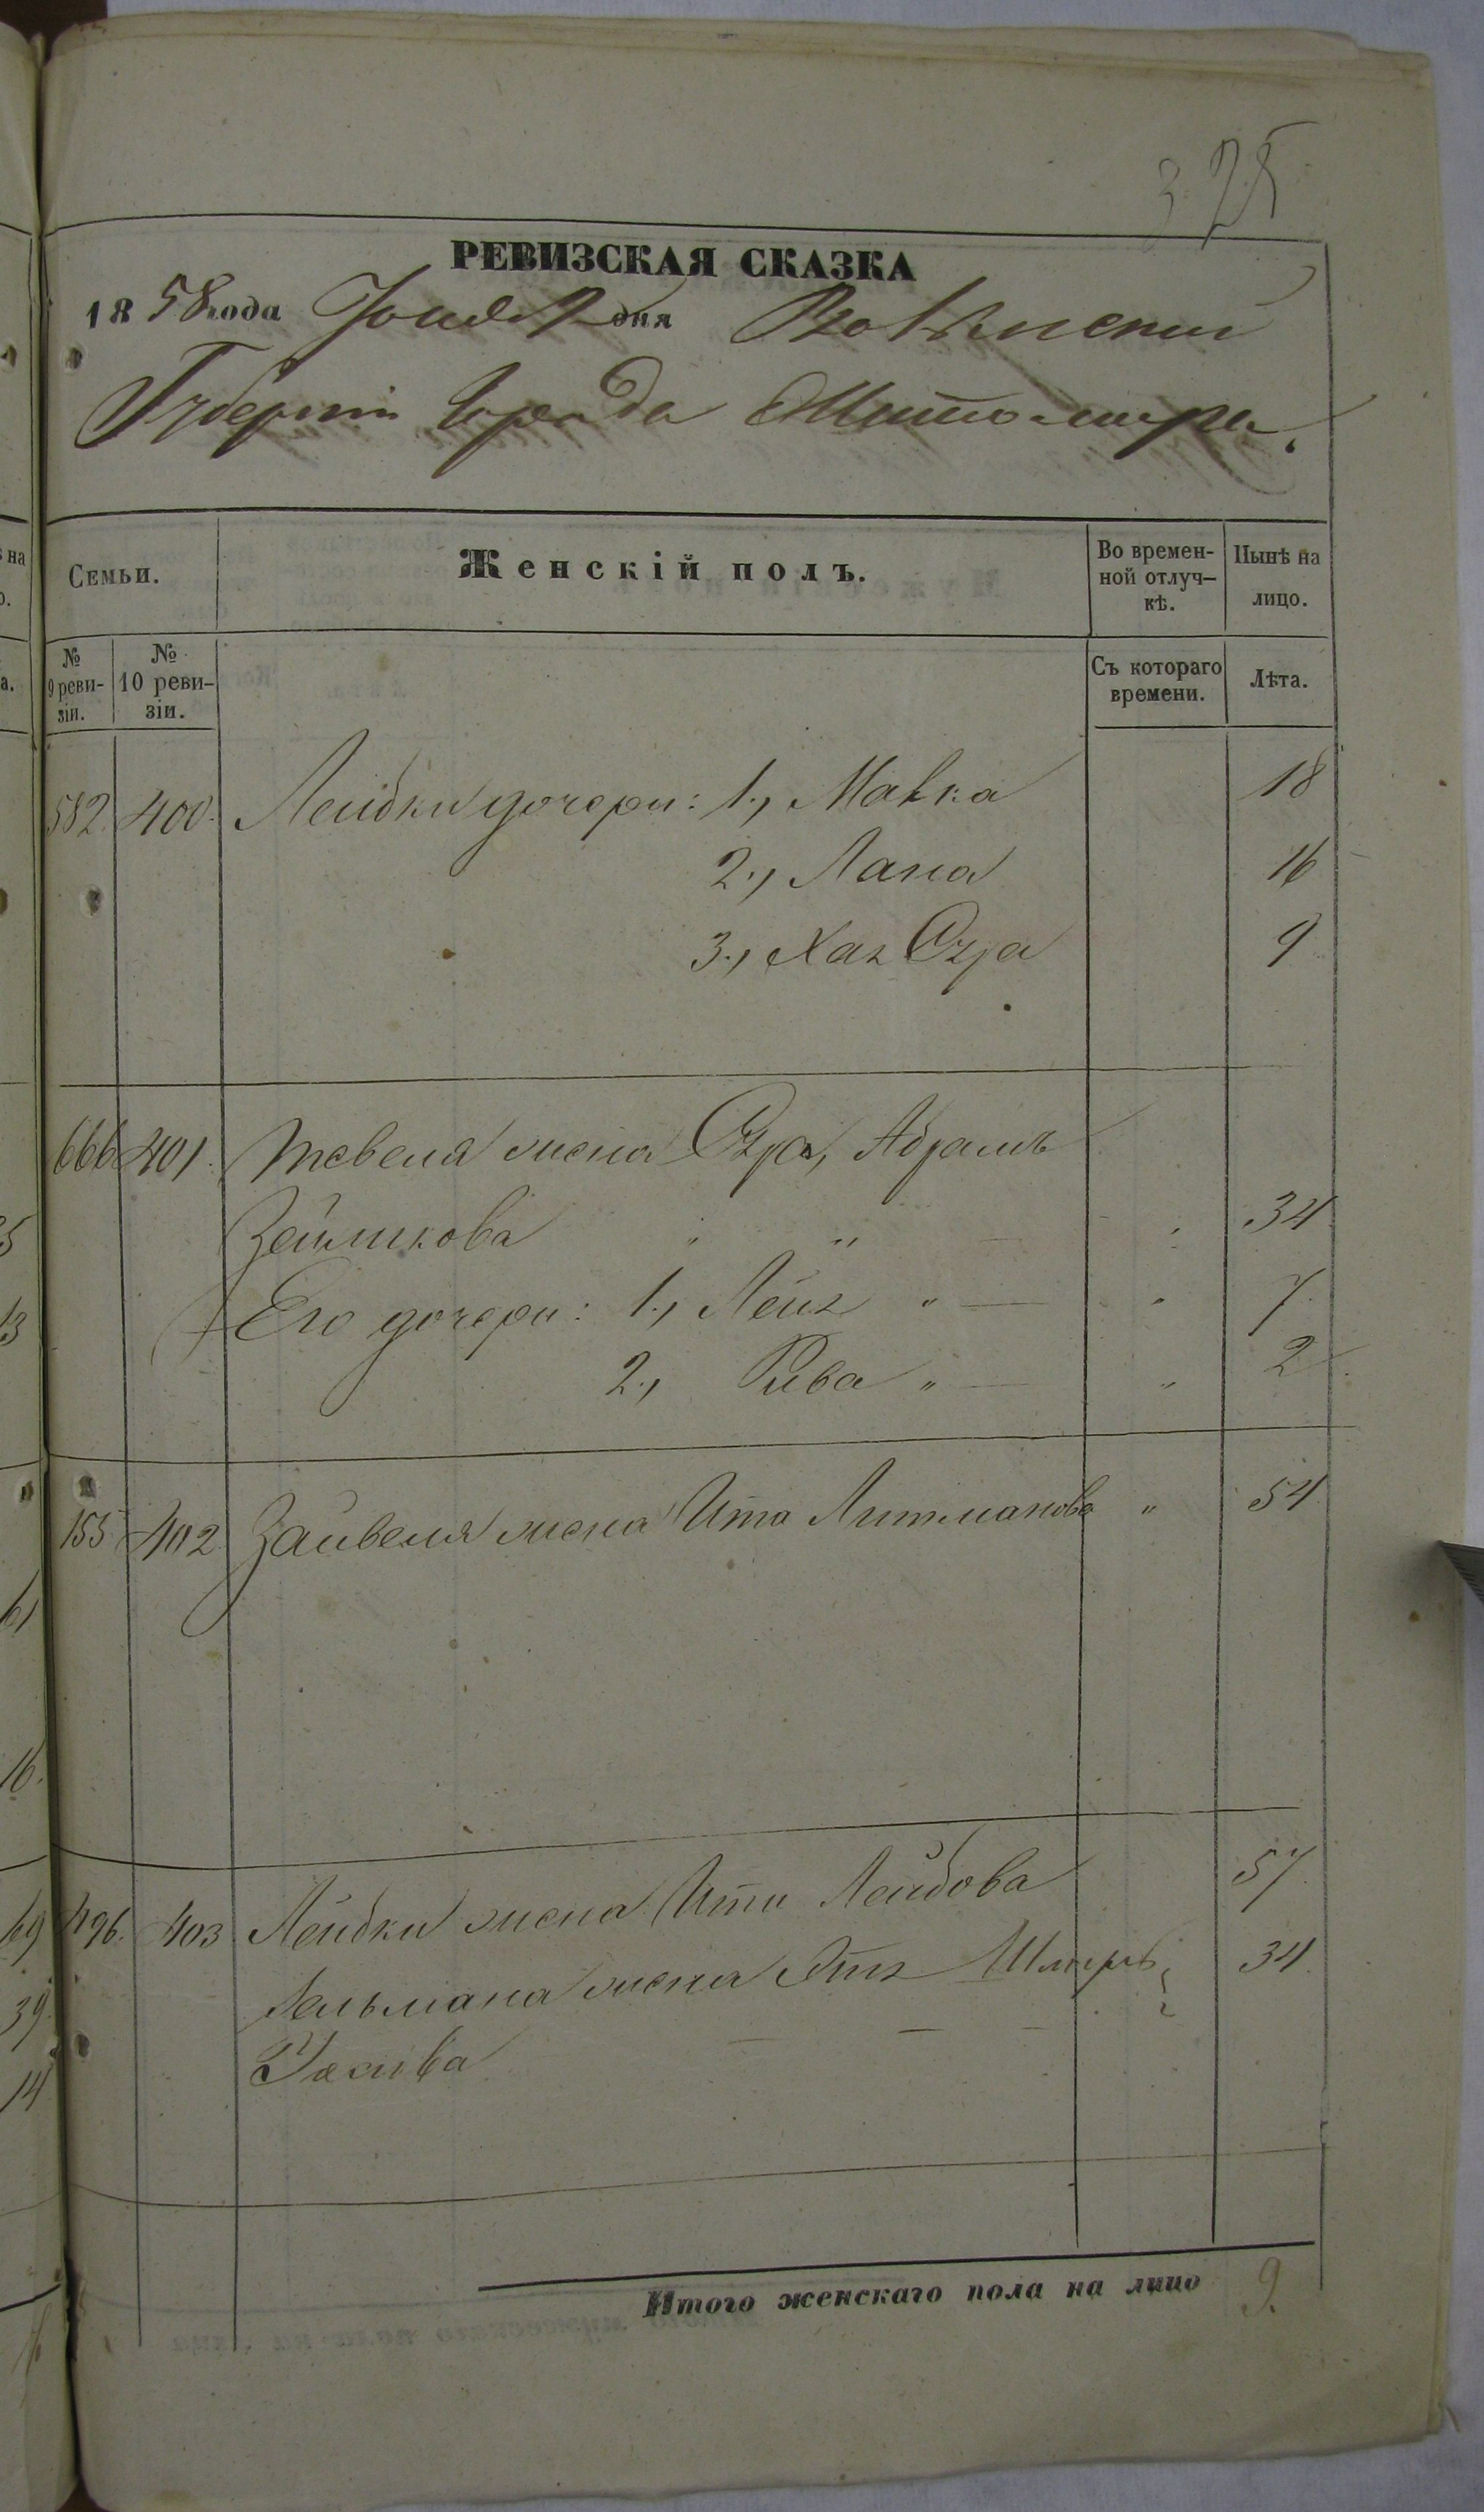 325
РЕВИЗСКАЯ СКАЗКА
1858 года Іюня 2 дня Волынской
Губерніи Города Житомира.
Семьи.
Женскій полъ.
Во времен-
ной отлуч-
кѣ.
Нынѣ на
лицо.
№
9 реви-
зіи.
№
10 реви-
зіи.
Съ котораго
времени.
Лѣта.
582. 400. Лейбки дочери: 1., Малка 18
2., Лана 16
3., Хая Сура 9
666 401. Тевеля жена Сура, Абрамъ
Зейликова " " 34
Его дочери: 1., Лея " — " 7.
2., Рива " — " 2
155 402 Зайвеля жена Ита Литманова " 54
496. 403 Лейбки жена Ити Лейбова 57.
жена 34.
Итого женскаго пола на лицо 9.